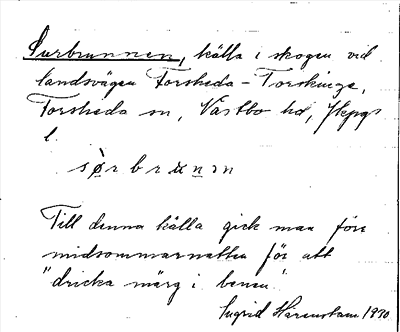 Surbrunnen, källa i skogen vid
landsvägen Forsheda - Torskinge,
Forsheda sn, Västbo hd, Jkpgs
l.
Till denna källa gick man före
midsommarnatten för att
"dricka märg i benen".
Ingrid Härenstam 1930